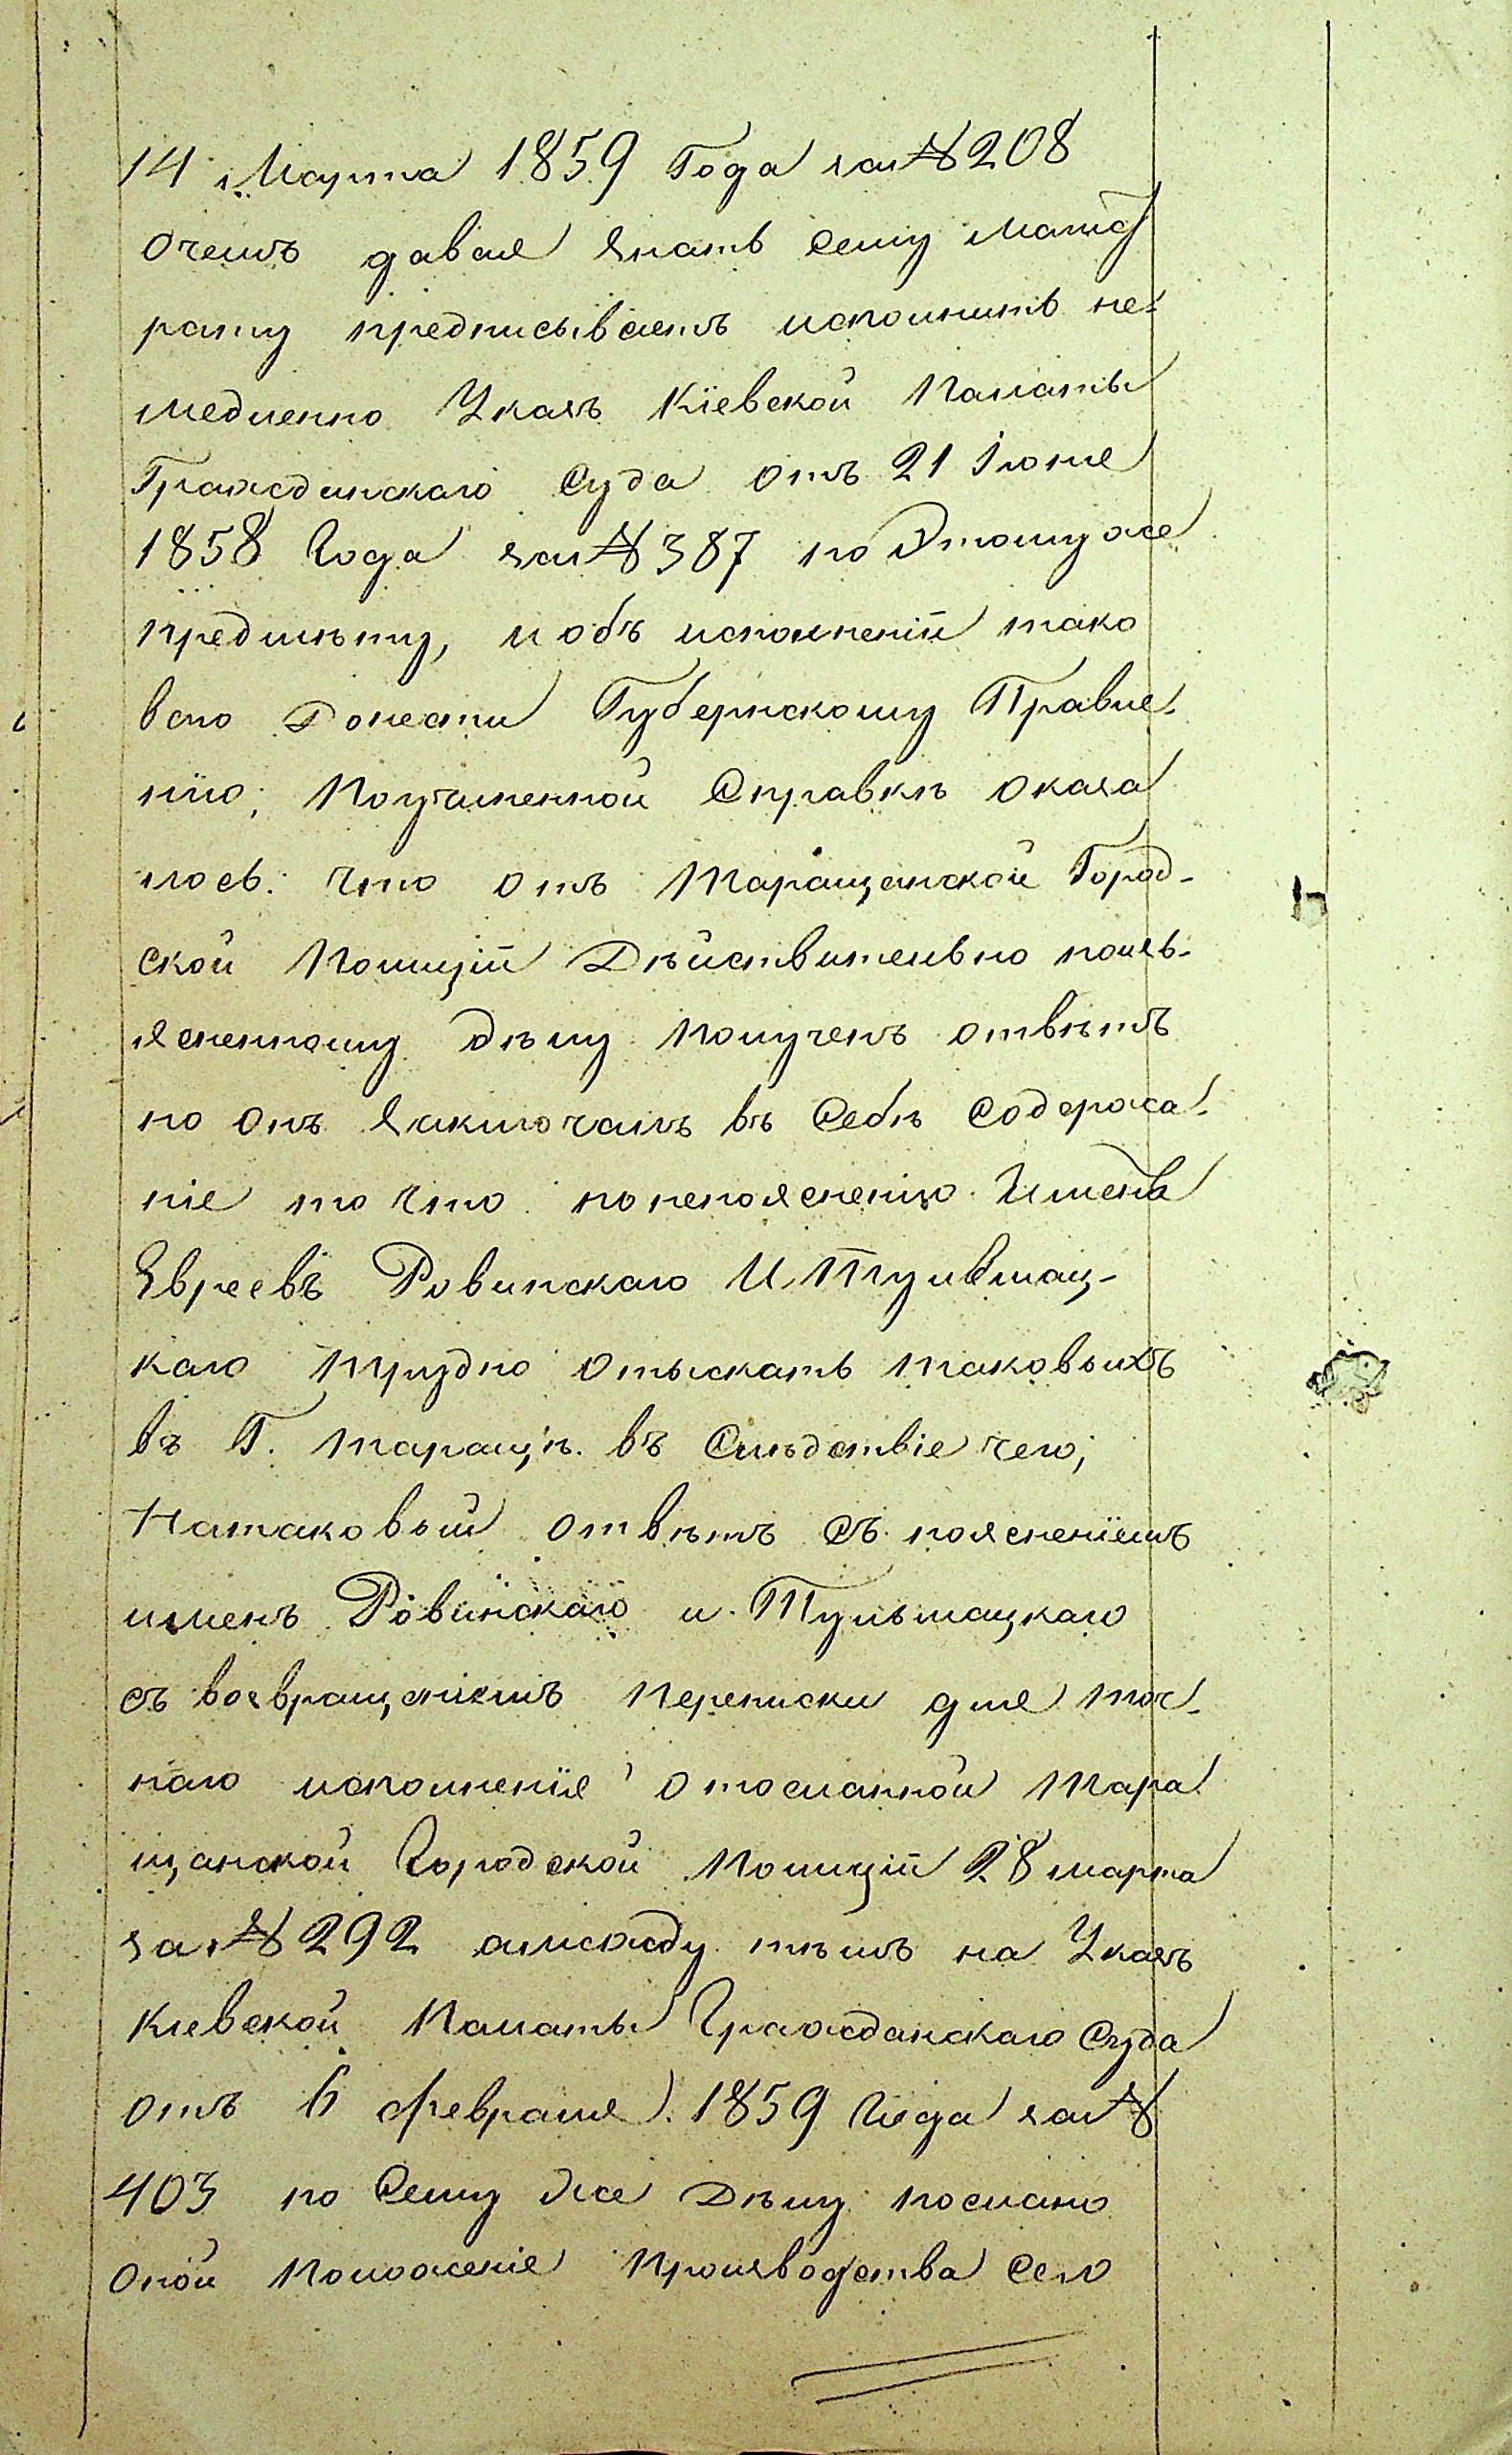 14 Марта 1859 Года за № 208
Очемъ давая знать сему магист
рату предписываетъ исполнить не-
медленно Указъ Кіевской Палаты
Гражданскаго Суда отъ 21 Іюня
1858 Года за № 387 по Этомуже
предмѣту, и объ исполненіи тако
ваго Донести Губернскому Правле-
нію; Поучиненной Справкѣ оказа
лось: что отъ Таращанской Город-
ской Полиціи Дѣйствительно поизъ-
ясненному дѣлу полученъ отвѣтъ
но онъ Заключалъ въ Себѣ Содержа-
ніе то что понепоясненію Именъ
Евреевъ Ровинскаго И Тульмац-
каго трудно отыскать таковыхъ
въ Г. Таращѣ. въ Слѣдствіе чего;
Натаковый отвѣтъ съ поясненіемъ
именъ Ровинскаго и Тульмацкаго
съ возвращеніемъ переписки для точ-
наго исполненія отосланной Тара
щанской Городской Полиціи 28 марта
за № 292 амежду тѣмъ на Указъ
Кіевской Палаты Гражданскаго Суда
отъ 6 февраля 1859 Года за №
403 по Сему же Дѣлу послано
оной Положеніе Производства Сего